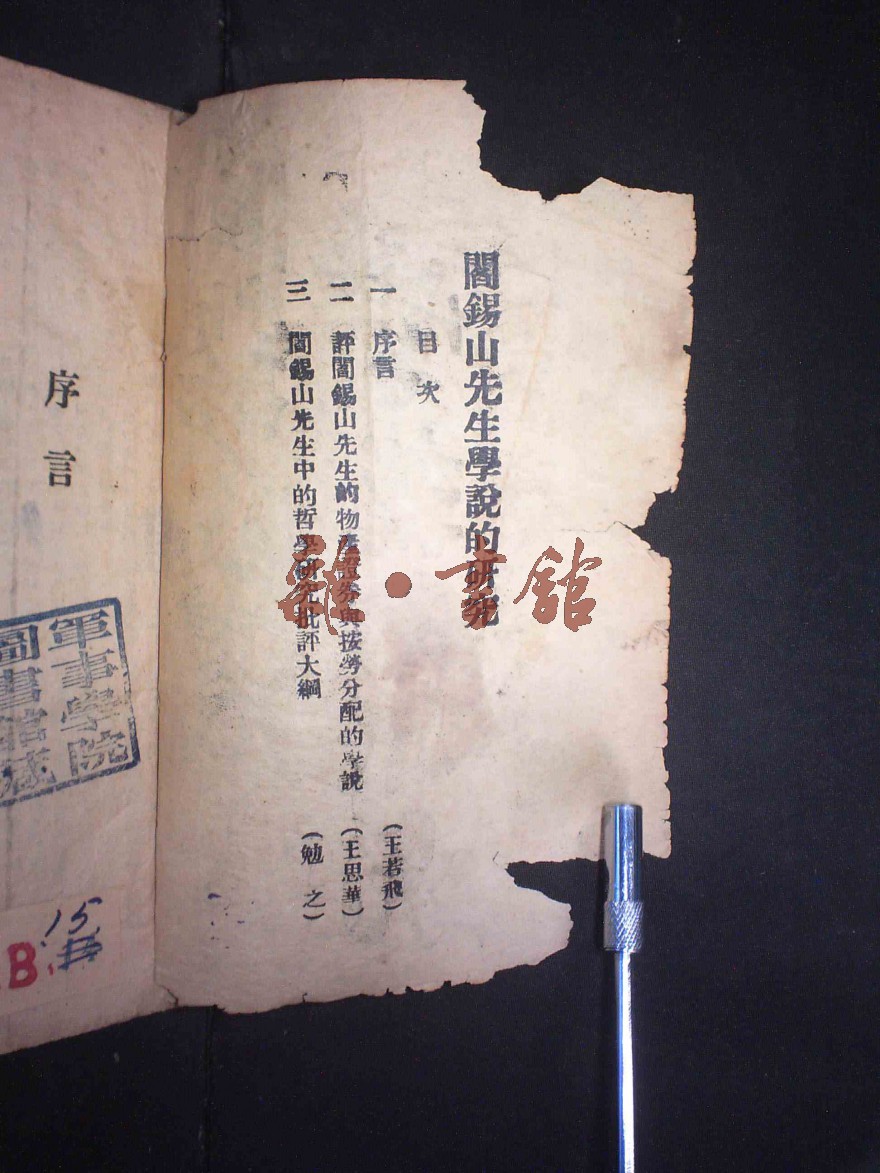 閻錫山先生學說的研究
目次
一 序言 (王若飛)
二 評閻錫山先生的物產證券與按勞分配的學說 (王思華)
三 閻錫山先生中的哲學研究批評大綱 (勉之)
序言
軍事學院
圖書館藏
15
B
雜·書館